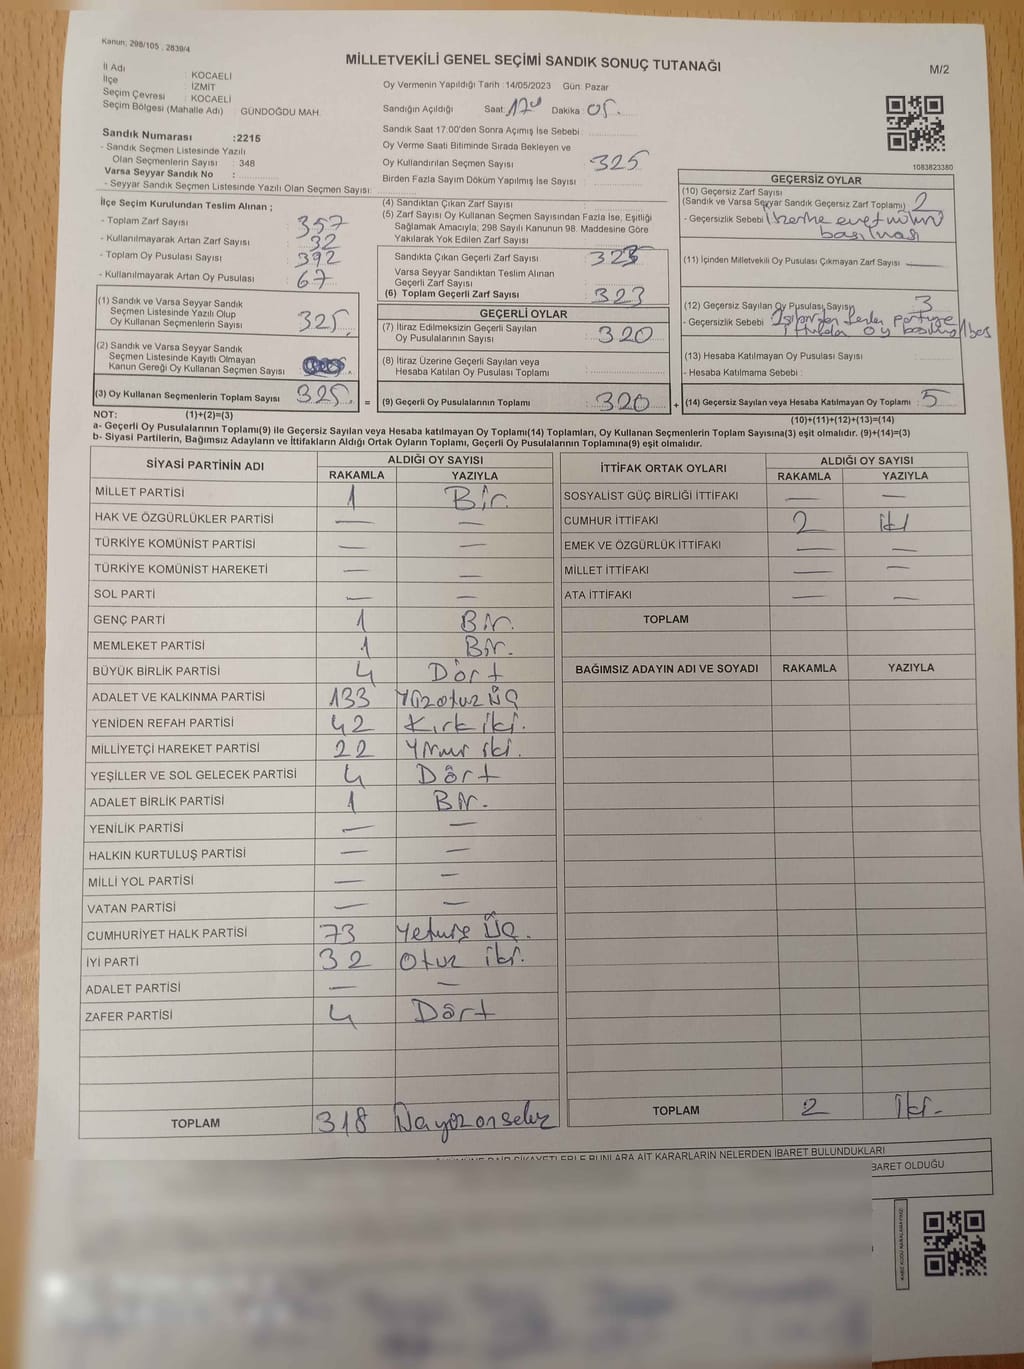 Kanun: 298/105 , 2839/4
MİLLETVEKİLİ GENEL SEÇİMİ SANDIK SONUÇ TUTANAĞI
M/2
İl Adı : KOCAELİ
İlçe : İZMİT
Seçim Çevresi : KOCAELİ
Seçim Bölgesi (Mahalle Adı) : GÜNDOĞDU MAH.
Oy Vermenin Yapıldığı Tarih : 14/05/2023 Gün: Pazar
Sandığın Açıldığı Saat: 17 Dakika: 05.
Sandık Saat 17.00'den Sonra Açımış İse Sebebi :
Oy Verme Saati Bitiminde Sırada Bekleyen ve
Oy Kullandırılan Seçmen Sayısı 325
Birden Fazla Sayım Döküm Yapılmış İse Sayısı :
1083823380
Sandık Numarası :2215
- Sandık Seçmen Listesinde Yazılı
Olan Seçmenlerin Sayısı : 348
Varsa Seyyar Sandık No :
- Seyyar Sandık Seçmen Listesinde Yazılı Olan Seçmen Sayısı:
İlçe Seçim Kurulundan Teslim Alınan ;
- Toplam Zarf Sayısı : 357
- Kullanılmayarak Artan Zarf Sayısı : 32
- Toplam Oy Pusulası Sayısı : 392
- Kullanılmayarak Artan Oy Pusulası : 67
(1) Sandık ve Varsa Seyyar Sandık
Seçmen Listesinde Yazılı Olup
Oy Kullanan Seçmenlerin Sayısı : 325
(2) Sandık ve Varsa Seyyar Sandık
Seçmen Listesinde Kayıtlı Olmayan
Kanun Gereği Oy Kullanan Seçmen Sayısı :
(3) Oy Kullanan Seçmenlerin Toplam Sayısı : 325 =
(4) Sandıktan Çıkan Zarf Sayısı :
(5) Zarf Sayısı Oy Kullanan Seçmen Sayısından Fazla İse, Eşitliği
Sağlamak Amacıyla, 298 Sayılı Kanunun 98. Maddesine Göre
Yakılarak Yok Edilen Zarf Sayısı :
Sandıkta Çıkan Geçerli Zarf Sayısı : 323
Varsa Seyyar Sandıktan Teslim Alınan
Geçerli Zarf Sayısı :
(6) Toplam Geçerli Zarf Sayısı : 323
GEÇERLİ OYLAR
(7) İtiraz Edilmeksizin Geçerli Sayılan
Oy Pusulalarının Sayısı : 320
(8) İtiraz Üzerine Geçerli Sayılan veya
Hesaba Katılan Oy Pusulası Toplamı :
(9) Geçerli Oy Pusulalarının Toplamı : 320 +
GEÇERSİZ OYLAR
(10) Geçersiz Zarf Sayısı
(Sandık ve Varsa Seyyar Sandık Geçersiz Zarf Toplamı) : 2
- Geçersizlik Sebebi : Üzerine evet mührü
basılması
(11) İçinden Milletvekili Oy Pusulası Çıkmayan Zarf Sayısı
(12) Geçersiz Sayılan Oy Pusulası Sayısı : 3
- Geçersizlik Sebebi : partiye
oy
(13) Hesaba Katılmayan Oy Pusulası Sayısı :
- Hesaba Katılmama Sebebi :
(14) Geçersiz Sayılan veya Hesaba Katılmayan Oy Toplamı : 5
NOT: (1)+(2)=(3)
(10)+(11)+(12)+(13)=(14)
a- Geçerli Oy Pusulalarının Toplamı(9) ile Geçersiz Sayılan veya Hesaba katılmayan Oy Toplamı(14) Toplamları, Oy Kullanan Seçmenlerin Toplam Sayısına(3) eşit olmalıdır. (9)+(14)=(3)
b- Siyasi Partilerin, Bağımsız Adayların ve İttifakların Aldığı Ortak Oyların Toplamı, Geçerli Oy Pusulalarının Toplamına(9) eşit olmalıdır.
SİYASİ PARTİNİN ADI ALDIĞI OY SAYISI
RAKAMLA YAZIYLA
MİLLET PARTİSİ 1 Bir.
HAK VE ÖZGÜRLÜKLER PARTİSİ — —
TÜRKİYE KOMÜNİST PARTİSİ — —
TÜRKİYE KOMÜNİST HAREKETİ — —
SOL PARTİ — —
GENÇ PARTİ 1 Bir.
MEMLEKET PARTİSİ 1 Bir.
BÜYÜK BİRLİK PARTİSİ 4 Dört
ADALET VE KALKINMA PARTİSİ 133 Yüzotuz üç
YENİDEN REFAH PARTİSİ 42 Kırk iki.
MİLLİYETÇİ HAREKET PARTİSİ 22 Yirmi iki.
YEŞİLLER VE SOL GELECEK PARTİSİ 4 Dört
ADALET BİRLİK PARTİSİ 1 Bir.
YENİLİK PARTİSİ — —
HALKIN KURTULUŞ PARTİSİ — —
MİLLİ YOL PARTİSİ — —
VATAN PARTİSİ — —
CUMHURİYET HALK PARTİSİ 73 Yetmiş üç.
İYİ PARTİ 32 Otuz iki.
ADALET PARTİSİ — —
ZAFER PARTİSİ 4 Dört
TOPLAM 318
İTTİFAK ORTAK OYLARI ALDIĞI OY SAYISI
RAKAMLA YAZIYLA
SOSYALİST GÜÇ BİRLİĞİ İTTİFAKI — —
CUMHUR İTTİFAKI 2 iki
EMEK VE ÖZGÜRLÜK İTTİFAKI — —
MİLLET İTTİFAKI — —
ATA İTTİFAKI — —
TOPLAM
BAĞIMSIZ ADAYIN ADI VE SOYADI RAKAMLA YAZIYLA
TOPLAM 2 İki.
ŞİKAYETLERLE BUNLARA AİT KARARLARIN NELERDEN İBARET BULUNDUKLARI
BARET OLDUĞU